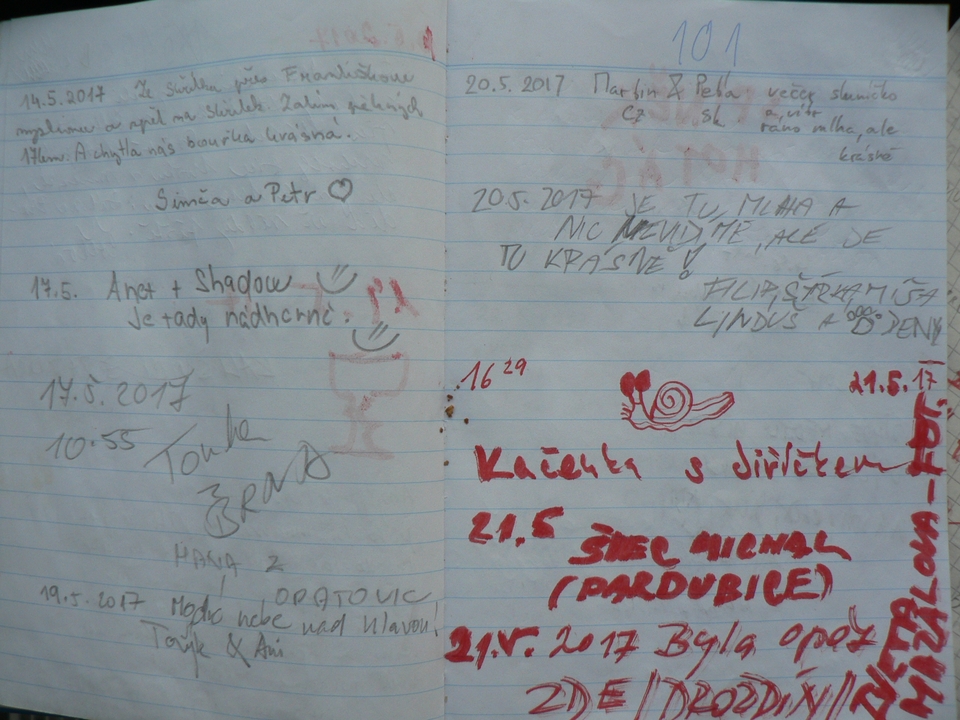 14.5.2017 Ze Skřítku přes Františkovu
myslivnu a zpět na Skřítek. Zatím pěkných
17km. A chytla nás bouřka krásná.
Simča a Petr
17.5. Anet + Shadow
Je tady nádherně.
17.5.2017
10.55
BRNO
HANA Z
OPATOVIC
19.5.2017 Modré nebe nad hlavou!
&
101
20.5.2017 Martin & Peťa večer sluníčko
CZ SK a vítr
ráno mlha, ale
krásně
20.5.2017 JE TU, MLHA A
NIC NEVIDÍME, ALE JE
TU KRÁSNĚ!
FILIP, ŠÁRKA, MÍŠA
LINDUŠ A
16 29
21.5.17
Kačenka s Jiříčkem
21.5
MICHAL
(PARDUBICE)
21.V. 2017 Byla opět
ZDE (DROZDÍN)
MAZALOVA - FOT.